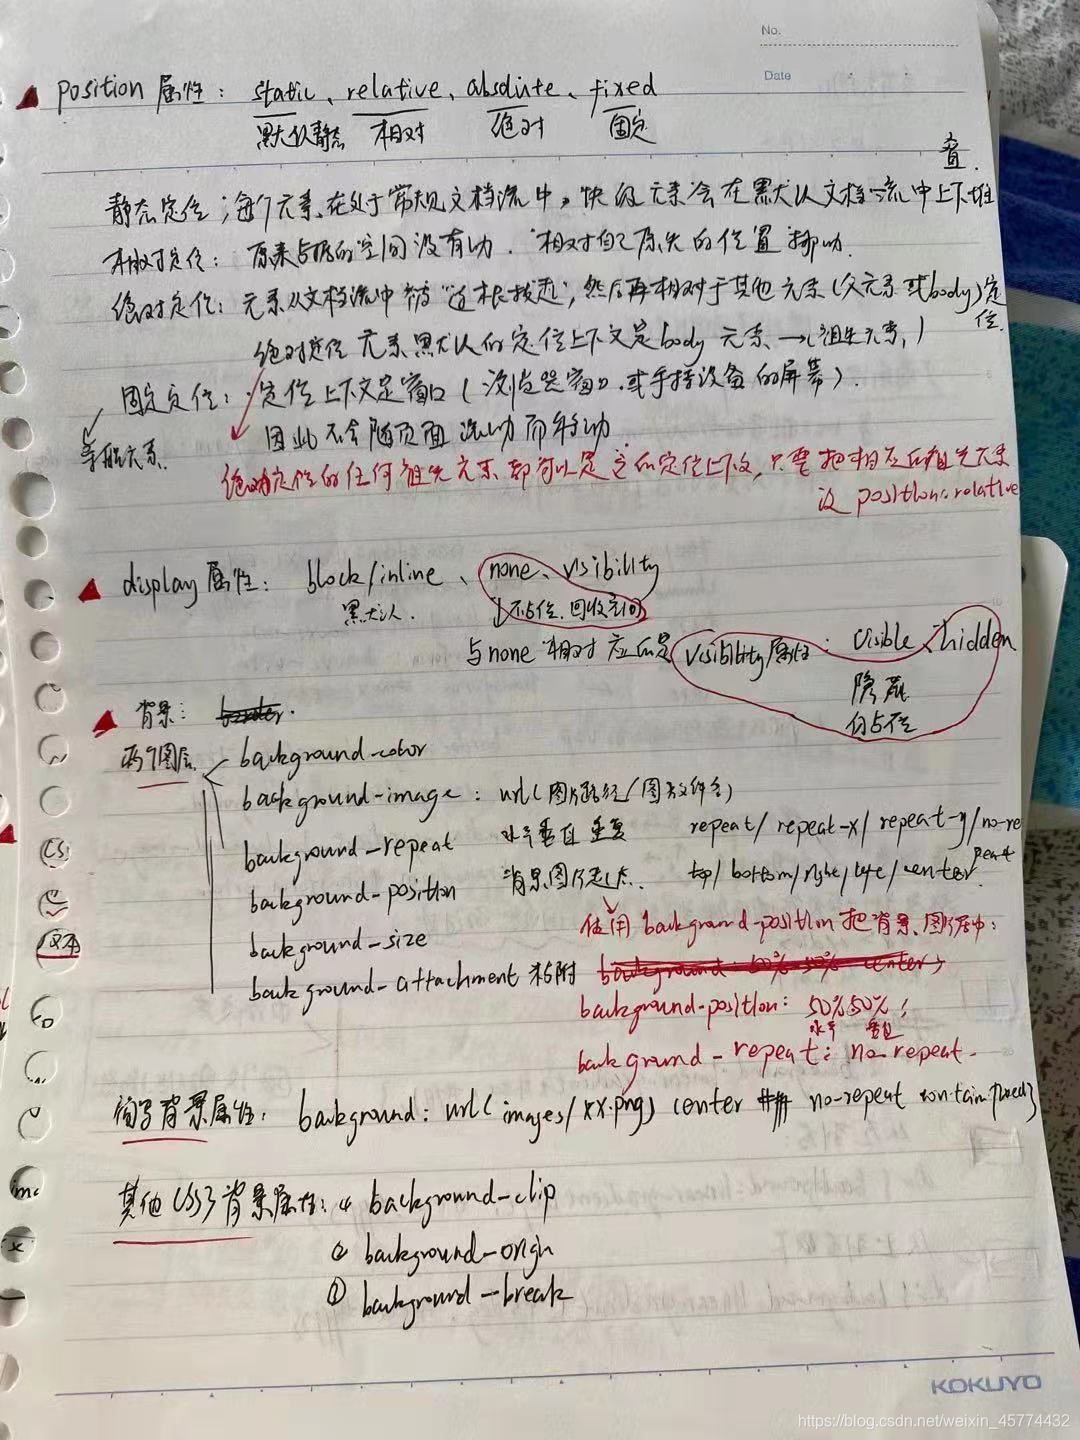 No.
Date
position 属性： static、relative、absolute、fixed
默认静态 相对 绝对 固定
静态定位；每个元素在处于常规文档流中，快级元素会在默认文档流中上下堆叠.
相对定位： 原来占据的空间没有动. 相对自己原先的位置挪动.
绝对定位：元素从文档流中被“连根拔起”，然后再相对于其他元素(父元素或body)定位.
绝对定位元素默认的定位上下文是body元素→(祖先元素,)
固定定位：定位上下文是窗口（浏览器窗口.或手持设备的屏幕）.
因此不会随页面滚动而移动
绝对定位的任何祖先元素都可以是它的定位上下文，只要把相应的祖先元素
设 position:relative
display 属性： block/inline 、none、visibility
默认. 不占位.回收空间
与none相对应的是 visibility属性： visible、hidden
隐藏
仍占位
背景：
两个图层
background-color
background-image：url(图片路径/图片文件名)
background-repeat 水平垂直重复 repeat/ repeat-x/ repeat-y/no-repeat
background-position 背景图片起点. top/bottom/right/left/center
background-size
使用 background-position 把背景图片居中：
background-attachment 粘附
background-position： 50% 50%；
水平 垂直
background-repeat：no-repeat.
简写背景属性： background：url(images/xx.png) center no-repeat contain fixed}
其他CSS3背景属性： background-clip
② background-origin
background-break
文本
KOKUYO
https://blog.csdn.net/weixin_45774432